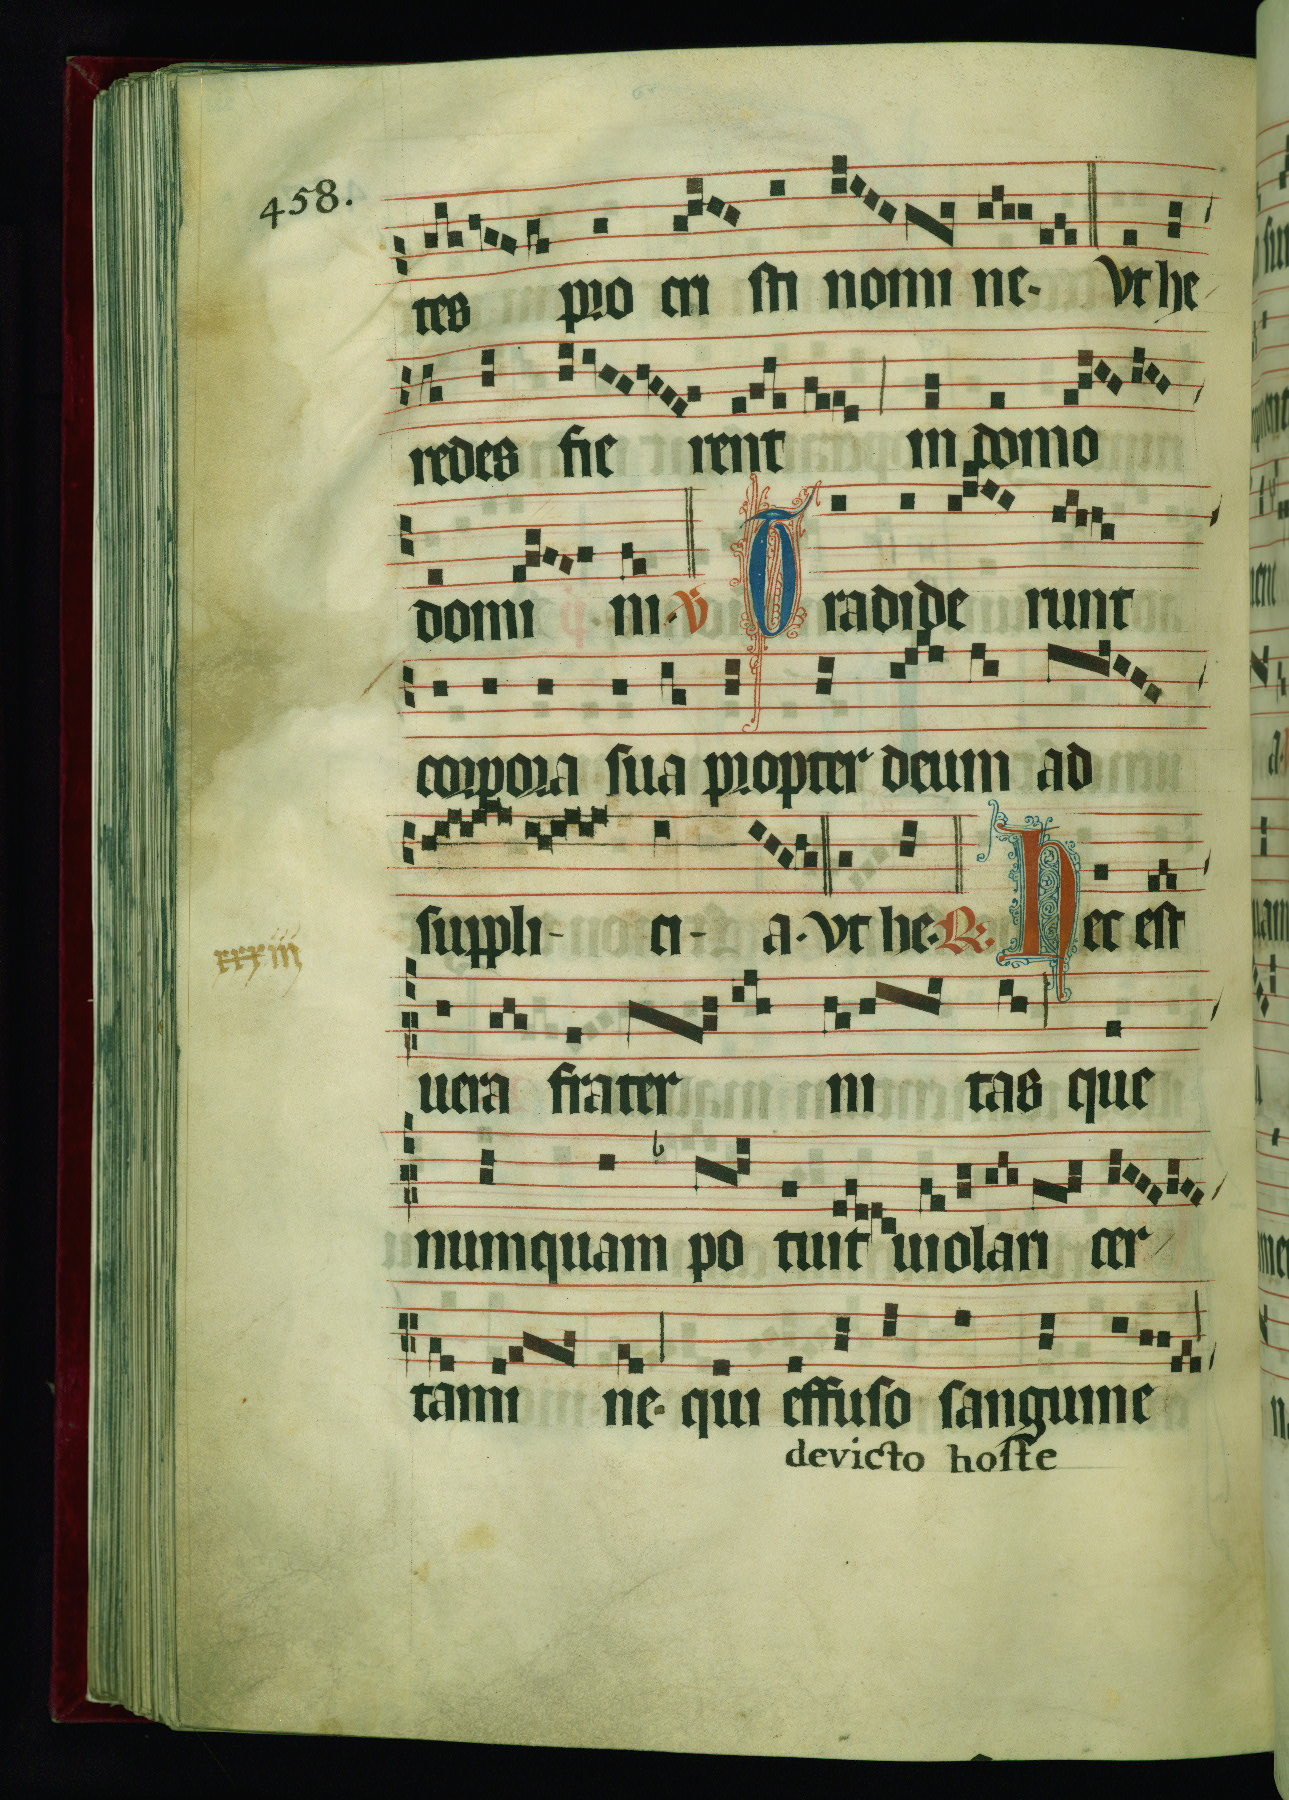 458.
tes pro cri sti nomi ne. Vt he
redes fie rent in domo
domi ni. V Tradide runt
corpora sua propter deum ad
suppli- ci- a. Vt he. R. Hec est
uera frater ni tas que
xxxiii
numquam po tuit uiolari cer
tami ne. qui effuso sanguine
devicto hoste